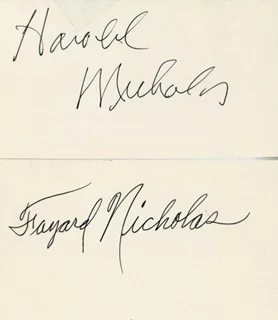 Harold
Nicholas
Fayard Nicholas